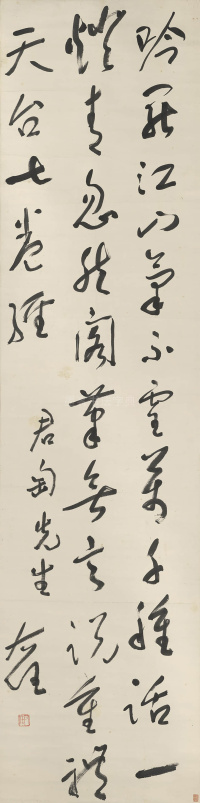 吟罷江山氣不靈萬千種話一
燈青忽然閣筆無言說重禮
天台七卷經
君匋先生
右任